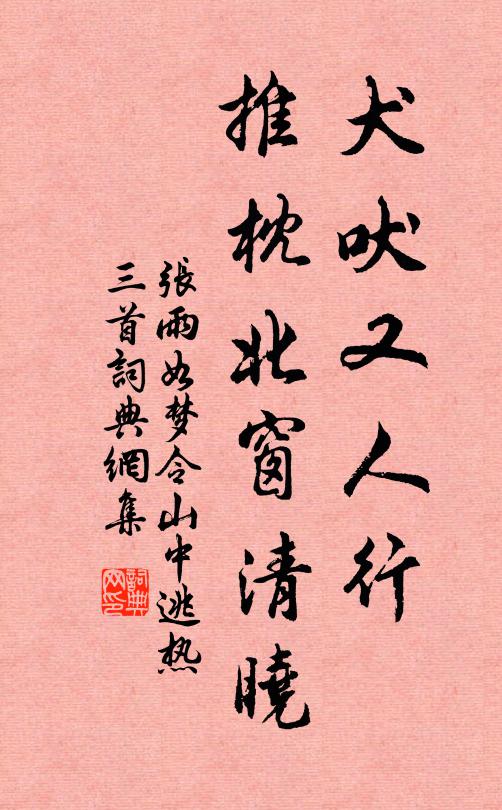 犬吠又人行
推枕北窗清曉
張雨如梦令山中逃热
三首詞典網集
詞典网印